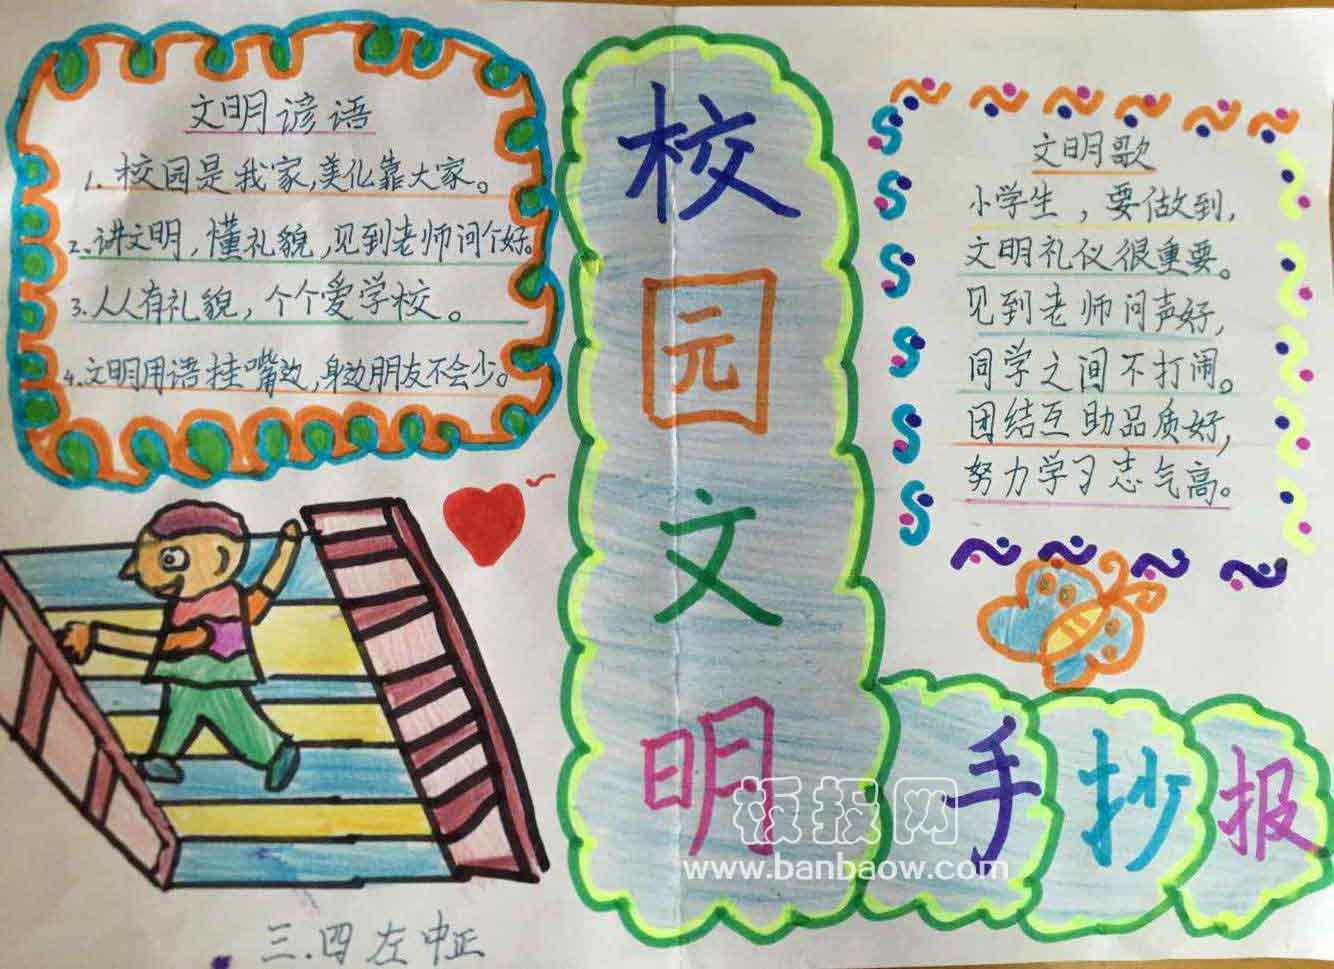 文明谚语
1.校园是我家,美化靠大家。
2.讲文明,懂礼貌,见到老师问个好。
3.人人有礼貌,个个爱学校。
4.文明用语挂嘴边,身边朋友不会少。
校园文明
手抄报
文明歌
小学生,要做到,
文明礼仪很重要。
见到老师问声好,
同学之间不打闹。
团结互助品质好,
努力学习志气高。
三.四 左中正
板报网
www.banbaow.com